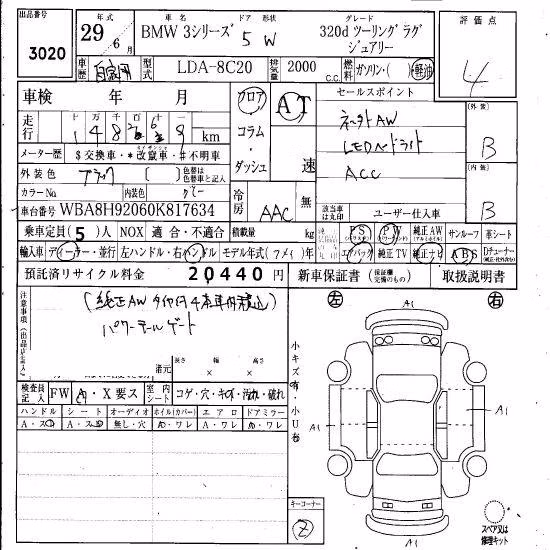 出品番号 3020
年式 29年 6月
車名 BMW 3シリーズ
ドア 形状 5 W
グレード 320d ツーリング ラグジュアリー
評価点 4
車歴 自家用
型式 LDA-8C20
排気量 2000 c.c.
燃料 ガソリン・( ) 軽油
車検 年 月
フロア コラム・ダッシュ
AT 速
セールスポイント
LEDヘッドライト
ACC
外装 B
内装 B
走行 km
メーター歴 $交換車・*改竄車・#不明車
外装色 ブラック
色替は色替車と記入
カラーNo 内装色 グレー
冷房 AAC 無
該当車は丸印
ユーザー仕入車
車台番号 WBA8H92060K817634
乗車定員(5)人 NOX 適合・不適合
積載量 kg
PS PW 純正AW サンルーフ 革シート
輸入車 ディーラー・並行 左ハンドル・右ハンドル モデル年式( )年
エアバック 純正TV 純正ナビ ABS Dチューナー
預託済リサイクル料金 20440円
新車保証書 (保証継続可能のもの) 取扱説明書
注意事項(出品店記入)
パワーテールゲート
諸元 長さ × 幅 × 高さ
検査員記入 FW ・X要ス
室内シート コゲ・穴・キレ・汚れ・破れ
ハンドル シート オーディオ ホイル(カバー) エアロ ドアミラー
A・スレ A・スレ 無し・穴 AD・ワレ A・ワレ AD・ワレ
小キズ有・小U有
左 右
A1
A1
A1
A1
キーコーナー 2
スペア又は修理キット